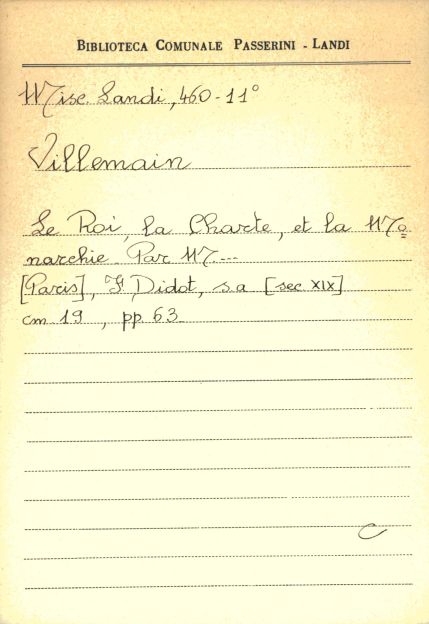 BIBLIOTECA COMUNALE PASSERINI - LANDI
Misc. Landi, 460-11°
Villemain
Le Roi, la Charte, et la Mo=
narchie. Par M....
[Paris], F. Didot, s.a. [sec XIX]
cm 19, pp. 63
C